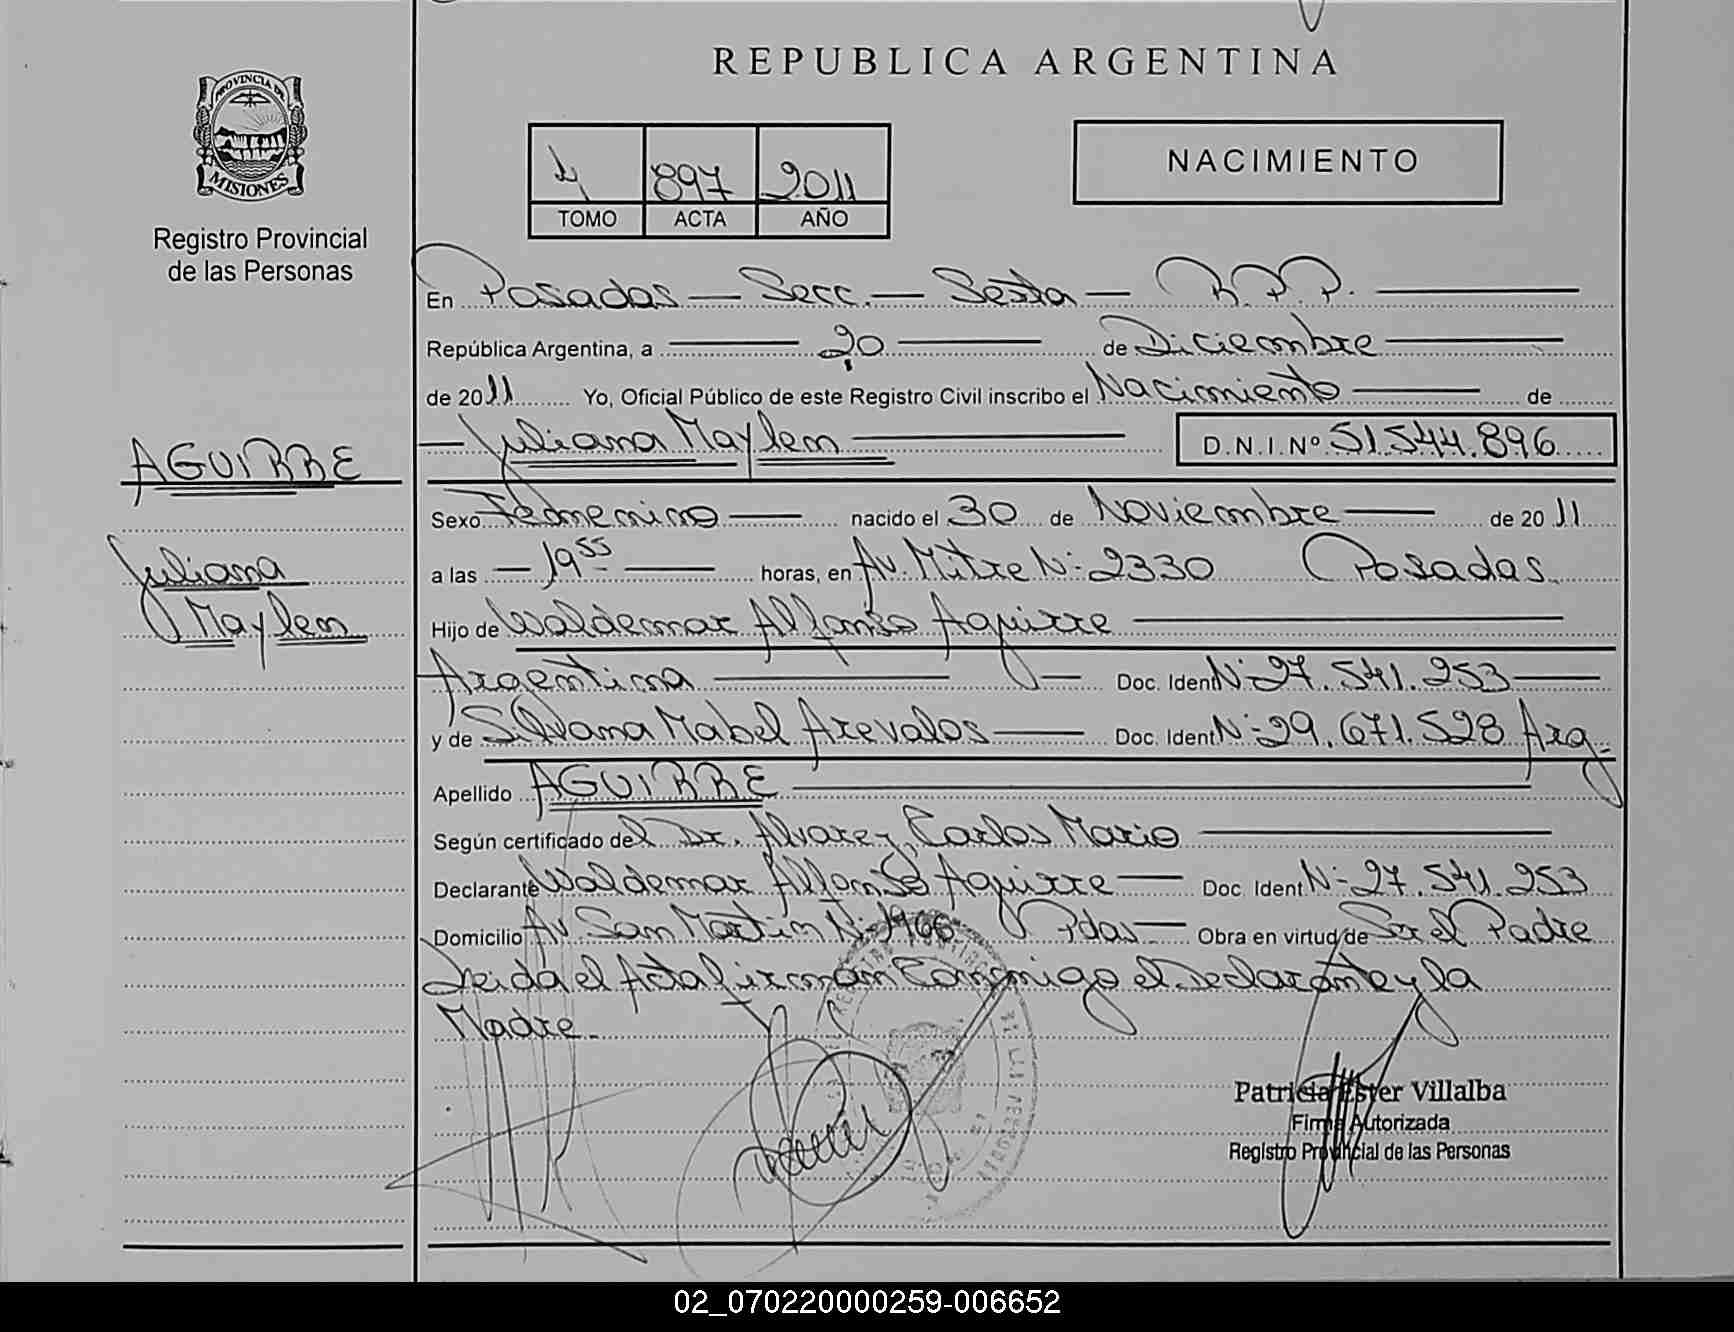 REPUBLICA ARGENTINA
PROVINCIA DE
MISIONES
Registro Provincial
de las Personas
4 897 2011
TOMO ACTA AÑO
NACIMIENTO
En Posadas — Secc. — Sexta — R.P.P.
República Argentina, a 20 de Diciembre
de 2011 Yo, Oficial Público de este Registro Civil inscribo el Nacimiento de
Juliana Maylen D.N.I. Nº 51.544.896
AGUIRRE
Juliana
Maylen
Sexo Femenino nacido el 30 de Noviembre de 2011
a las 19 55 horas, en Av. Mitre Nº 2330 Posadas
Hijo de Waldemar Alfonso Aguirre
Argentina Doc. Ident Nº 27.541.253
y de Silvana Mabel Arevalos Doc. Ident Nº 29.671.528 Arg.
Apellido AGUIRRE
Según certificado del Dr. Alvarez Carlos Mario
Declarante Waldemar Alfonso Aguirre Doc. Ident Nº 27.541.253
Domicilio Av San Martin Nº 1966 Pdas Obra en virtud de Ser el Padre
Leida el Acta firman Conmigo el Declarante y la
Madre.
Patricia Ester Villalba
Firma Autorizada
Registro Provincial de las Personas
02_070220000259-006652